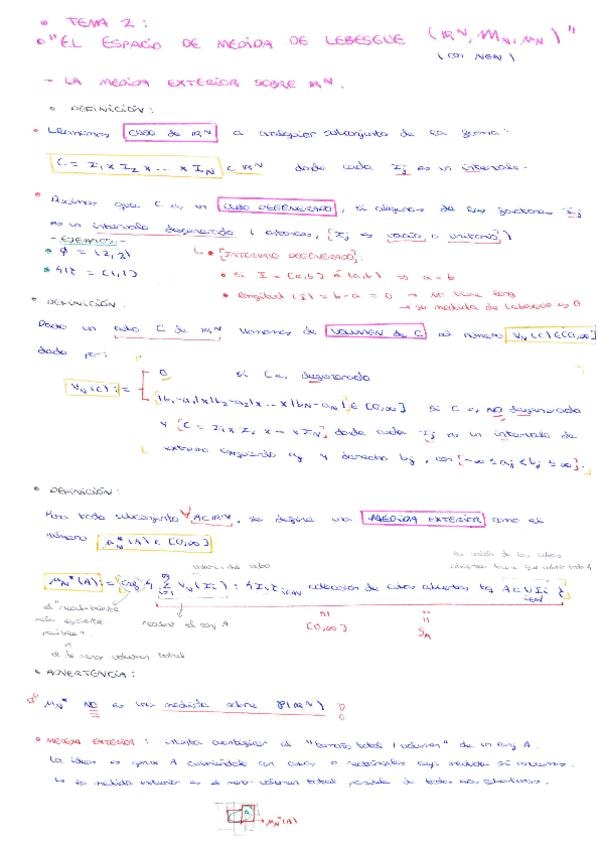 • TEMA 2:
• "EL ESPACIO DE MEDIDA DE LEBESGUE (ℝᴺ, 𝓜_N, μ_N)"
(con N∈ℕ)
- LA MEDIDA EXTERIOR SOBRE ℝᴺ.
• DEFINICIÓN:
• Llamamos cubo de ℝᴺ a cualquier subconjunto de la forma:
C = I₁ x I₂ x ... x I_N ⊂ ℝᴺ donde cada I_j es un intervalo.
• Decimos que C es un CUBO DEGENERADO, si alguno de los factores I_j
es un intervalo degenerado (entonces, I_j es vacío o unitario)
- EJEMPLOS -
• ∅ = (2,2) ↳ • [INTERVALO DEGENERADO].
• {1} = [1,1] • si I = [a,b] ó (a,b) ⇒ a = b
• longitud (I) = b - a = 0 → no tiene long
→ su medida de Lebesgue es 0
• DEFINICIÓN.
Dado un cubo C de ℝᴺ, llamamos de VOLUMEN de C al número V_N(C) ∈ [0,∞]
dado por:
V_N(C) := { 0 si C es degenerado
|b₁-a₁| x |b₂-a₂| x ... x |b_N-a_N| ∈ [0,∞] si C es NO degenerado
y [C = I₁ x I₂ x ... x I_N], donde cada I_j es un intervalo de
extremo izquierdo a_j y derecho b_j, con [-∞ ≤ a_j < b_j ≤ ∞].
• DEFINICIÓN:
Para todo subconjunto ∀ A⊂ℝᴺ, se define una MEDIDA EXTERIOR como el
número μ_N*(A) ∈ [0,∞]
la unión de los cubos
abiertos tiene que cubrir todo A
volumen del cubo
μ_N*(A) := inf { Σ V_N(I_i) : {I_i}_{i∈ℕ} colección de cubos abiertos tq A ⊂ ∪ I_i }
el "recubrimiento
más eficiente
posible"
recubrir el conj A
[0,∞]
S_A
el de menor volumen total
• ADVERTENCIA:
μ_N* NO es una medida sobre 𝒫(ℝᴺ)
• MEDIDA EXTERIOR: intenta cuantificar el "tamaño total / volumen" de un conj A.
La idea es aprox A cubriéndolo con cubos o rectángulos cuya medida sí conocemos.
↳ la medida exterior es el menor volumen total posible de todos esos
A
→ μ_N*(A)